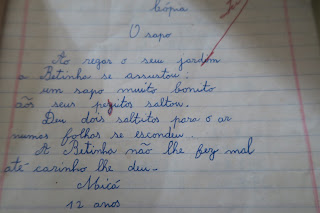 Cópia
O sapo
Ao regar o seu jardim
a Betinha se assustou:
um sapo muito bonito
aos seus pezitos saltou.
Deu dois saltitos para o ar
numas folhas se escondeu.
A Betinha não lhe fez mal
até carinho lhe deu.
Naicá
12 anos